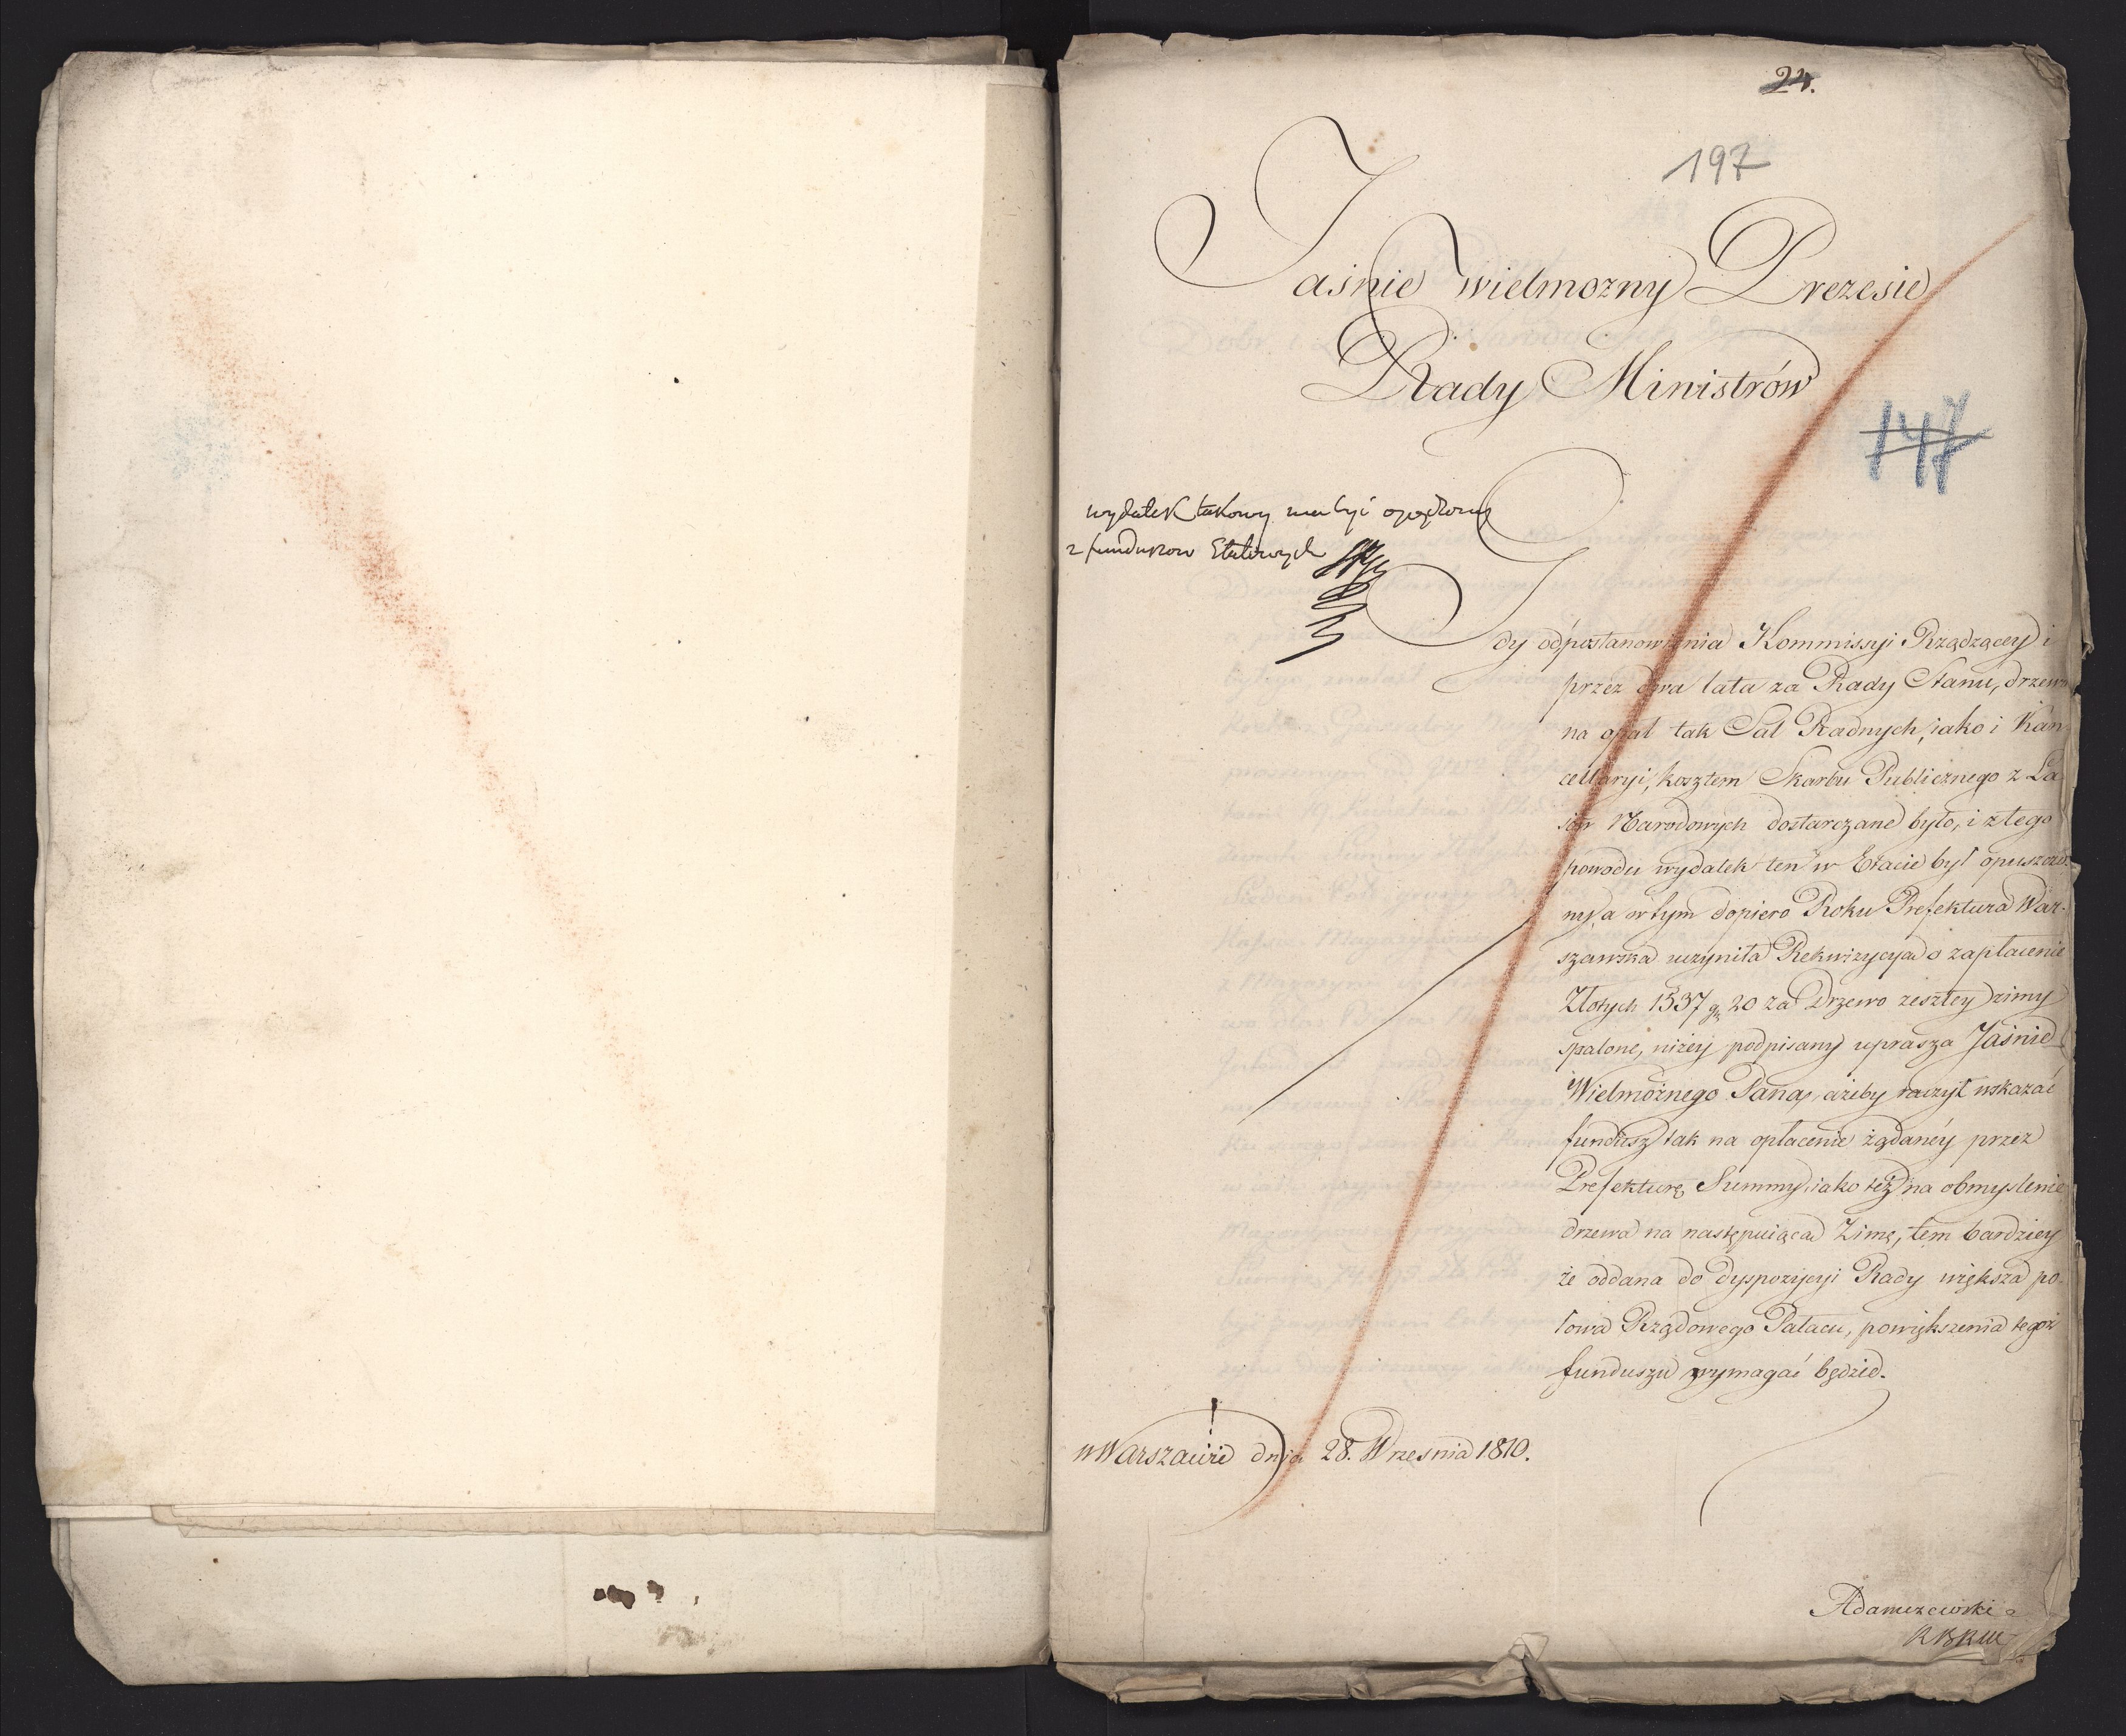 24.
197
Jaśnie Wielmozny Prezesie
Rady Ministrów
147
wydatek takowy ma być opędzony
z funduszow Etatowych
Gdy od postanowienia Kommissyi Rządzącey i
przez dwa lata za Rady Stanu, drzewo
na opał tak Sal Radnych, iako i Kan
cellaryi, kosztem Skarbu Publicznego z La
sów Narodowych dostarczane było, i z tego
powodu wydatek ten w Etacie był opuszczo
ny, a w tym dopiero Roku Prefektura War-
szawska uczyniła Rekwizycyą o zapłacenie
Złotych 1337 gr 20 za Drzewo zeszłey zimy
spalone, niżey podpisany uprasza Jaśnie
Wielmożnego Pana, ażeby raczył wskazać
fundusz tak na opłacenie żądanéy przez
Prefekturę Summy, iako też na obmyslenie
drzewa na następuiącą Zimę, tem bardziey
że oddana do dyspozycyi Rady większa po-
łowa Rządowego Pałacu, powiększenia tegoż
funduszu wymagać będzie.
w Warszawie dnia 28. Wrzesnia 1810.
Adamczewski